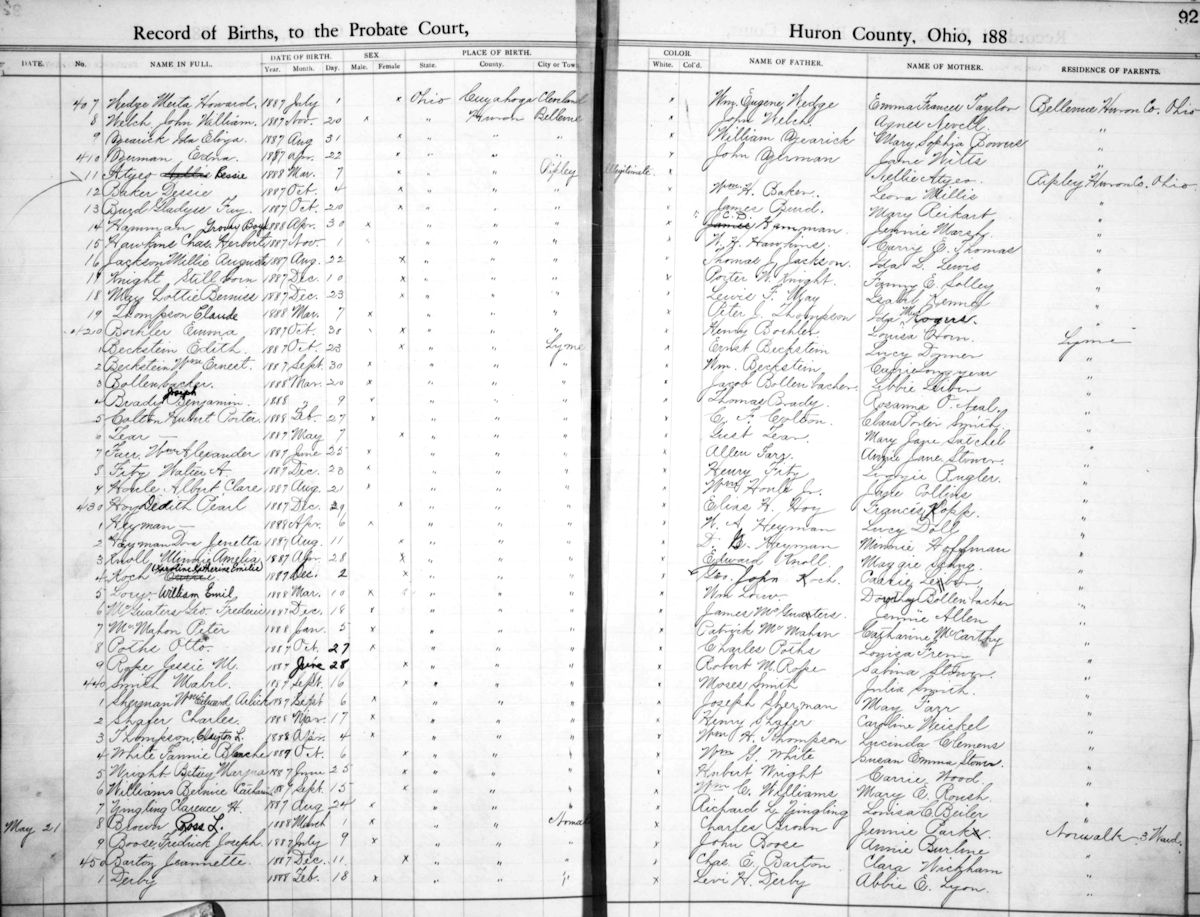 92
Record of Births, to the Probate Court, Huron County, Ohio, 188
DATE. No. NAME IN FULL. DATE OF BIRTH. SEX PLACE OF BIRTH. COLOR. NAME OF FATHER. NAME OF MOTHER. RESIDENCE OF PARENTS.
Year. Month. Day. Male. Female State. County. City or Town White. Col'd.
407 Wedge Merta Howard. 1887 July 1 x Ohio Cuyahoga Cleveland x Wm. Eugene Wedge Emma Frances Taylor Bellevue Huron Co. Ohio
8 Welch John William. 1887 Nov. 20 x " Huron Bellevue x John Welch Agnes Nevell "
9 Ida 1887 Aug 31 x " " " x William Mary Sophia Bowers "
410 Edna. 1887 Apr. 22 x " " " x John Jane Wills "
11 Atyeo Bessie 1888 Mar. 7 x " " Ripley Illegitimate. Nellie Atyeo. Ripley Huron Co. Ohio
12 Baker Dessie 1887 Oct. 4 x " " " x Wm. H. Baker. Leora Willis "
13 Burd Gladys Fay 1887 Oct. 20 x " " " x James Burd. Mary Reikart "
14 Hamman Grover Boyd 1888 Apr. 30 x " " " x C. D. Hamman Jennie Marsh "
15 Hawkins Chas. Herbert 1887 Nov. 1 x " " " x W. H. Hawkins Carry E. Thomas "
16 Jackson Millie Augusta 1887 Aug. 22 x " " " x Thomas J. Jackson. Ida L. Lewis "
17 Knight Still born 1887 Dec. 10 x " " " x Porter W. Knight. Fanny E. Solley "
18 May Lottie Berniss 1887 Dec. 23 x " " " x Lewis F. May "
19 Thompson Claude 1888 Mar. 7 x " " " x Peter J. Thompson Ida May Rogers. "
420 Bohler Emma 1887 Oct. 30 x " " " x Henry Bohler Louisa Horn "
1 Beckstein Edith. 1887 Oct. 23 x " " Lyme x Ernst Beckstein Lucy Domer Lyme
2 Beckstein Wm Ernest. 1887 Sept. 30 x " " " x Wm. Beckstein "
3 Bollenbacher. 1888 Mar. 20 x " " " x Jacob Bollenbacher. Libbie Seiler "
4 Brady Joseph Benjamin. 1888 9 x " " " x Thomas Brady Rosanna O. Neal "
5 Colton Hubert Porter. 1888 Feb. 27 x " " " x C. F. Colton. Clara Porter Smith "
6 — 1887 May 7 x " " " x Gust Mary Jane Satchel "
7 Farr. Wm Alexander 1887 June 25 x " " " x Allen Farr. Annie Jane Stower. "
8 Fitz Walter A 1887 Dec. 23 x " " " x Henry Fitz Linnie Angler. "
9 Houle Albert Clare 1887 Aug. 21 x " " " x Wm Houle Jr. Jane Collins "
430 Hoy Dedith Pearl 1887 Dec. 29 x " " " x Elias H. Hoy Frances Kopp. "
1 Heyman — 1888 Apr. 6 x " " " x W. A Heyman Lucy Doll "
2 Heyman Dora Jenetta 1887 Aug. 11 x " " " x D. B. Heyman Minnie Hoffman "
3 Knoll Minnie Amelia 1887 Apr. 28 x " " " x Edward Knoll Maggie Schug. "
4 Koch Karoline Katherine Emilie 1887 Dec. 2 x " " " x Geo. John Koch. Carrie "
5 Lowy William Emil 1888 Mar. 10 x " " " x Wm Dorothy Bollenbacher "
6 McGuaters Geo. Frederic 1887 Dec. 18 x " " " x James McGuaters. Jennie Allen "
7 McMahon Peter 1888 Jan. 5 x " " " x Patrick McMahan Catharine McCarthy "
8 Poths Otto. 1887 Oct. 27 x " " " x Charles Poths Louisa "
9 Rope Jessie M. 1887 June 28 x " " " x Robert M. Rope Sabina Stower. "
440 Smith Mabel. 1887 Sept. 16 x " " " x Moses Smith Julia Smith. "
1 Sherman Wm Edward 1887 Sept 6 x " " " x Joseph Sherman May Farr "
2 Shafer Charles. 1888 Mar. 17 x " " " x Henry Shafer Caroline Weickel "
3 Thompson, Clayton L. 1888 Apr. 4 x " " " x Wm H. Thompson Lucinda Clemens "
4 White Fannie Blanche 1887 Oct. 6 x " " " x Wm G. White Susan Emma Stower "
5 Wright Betsey 1887 June 25 x " " " x Hubert Wright Carrie Wood. "
6 Williams Bernice 1887 Sept. 15 x " " " x Wm C. Williams Mary E. Roush. "
7 Yingling Clarence H. 1887 Aug 24 x " " " x Richard L. Yingling Louisa C. Beiler "
May 21 8 Brown Ross L. 1888 March 1 x " " Norwalk x Charles Brown Jennie Parks. Norwalk 3 Ward.
9 Boose, Fredrick Joseph. 1887 July 9 x " " " x John Boose Annie Burline "
450 Barton Jeannette. 1887 Dec. 11 x " " " x Chas. E. Barton Clara Wickham "
1 Derby 1888 Feb. 18 x " " " x Levi H. Derby Abbie E. Lyon. "